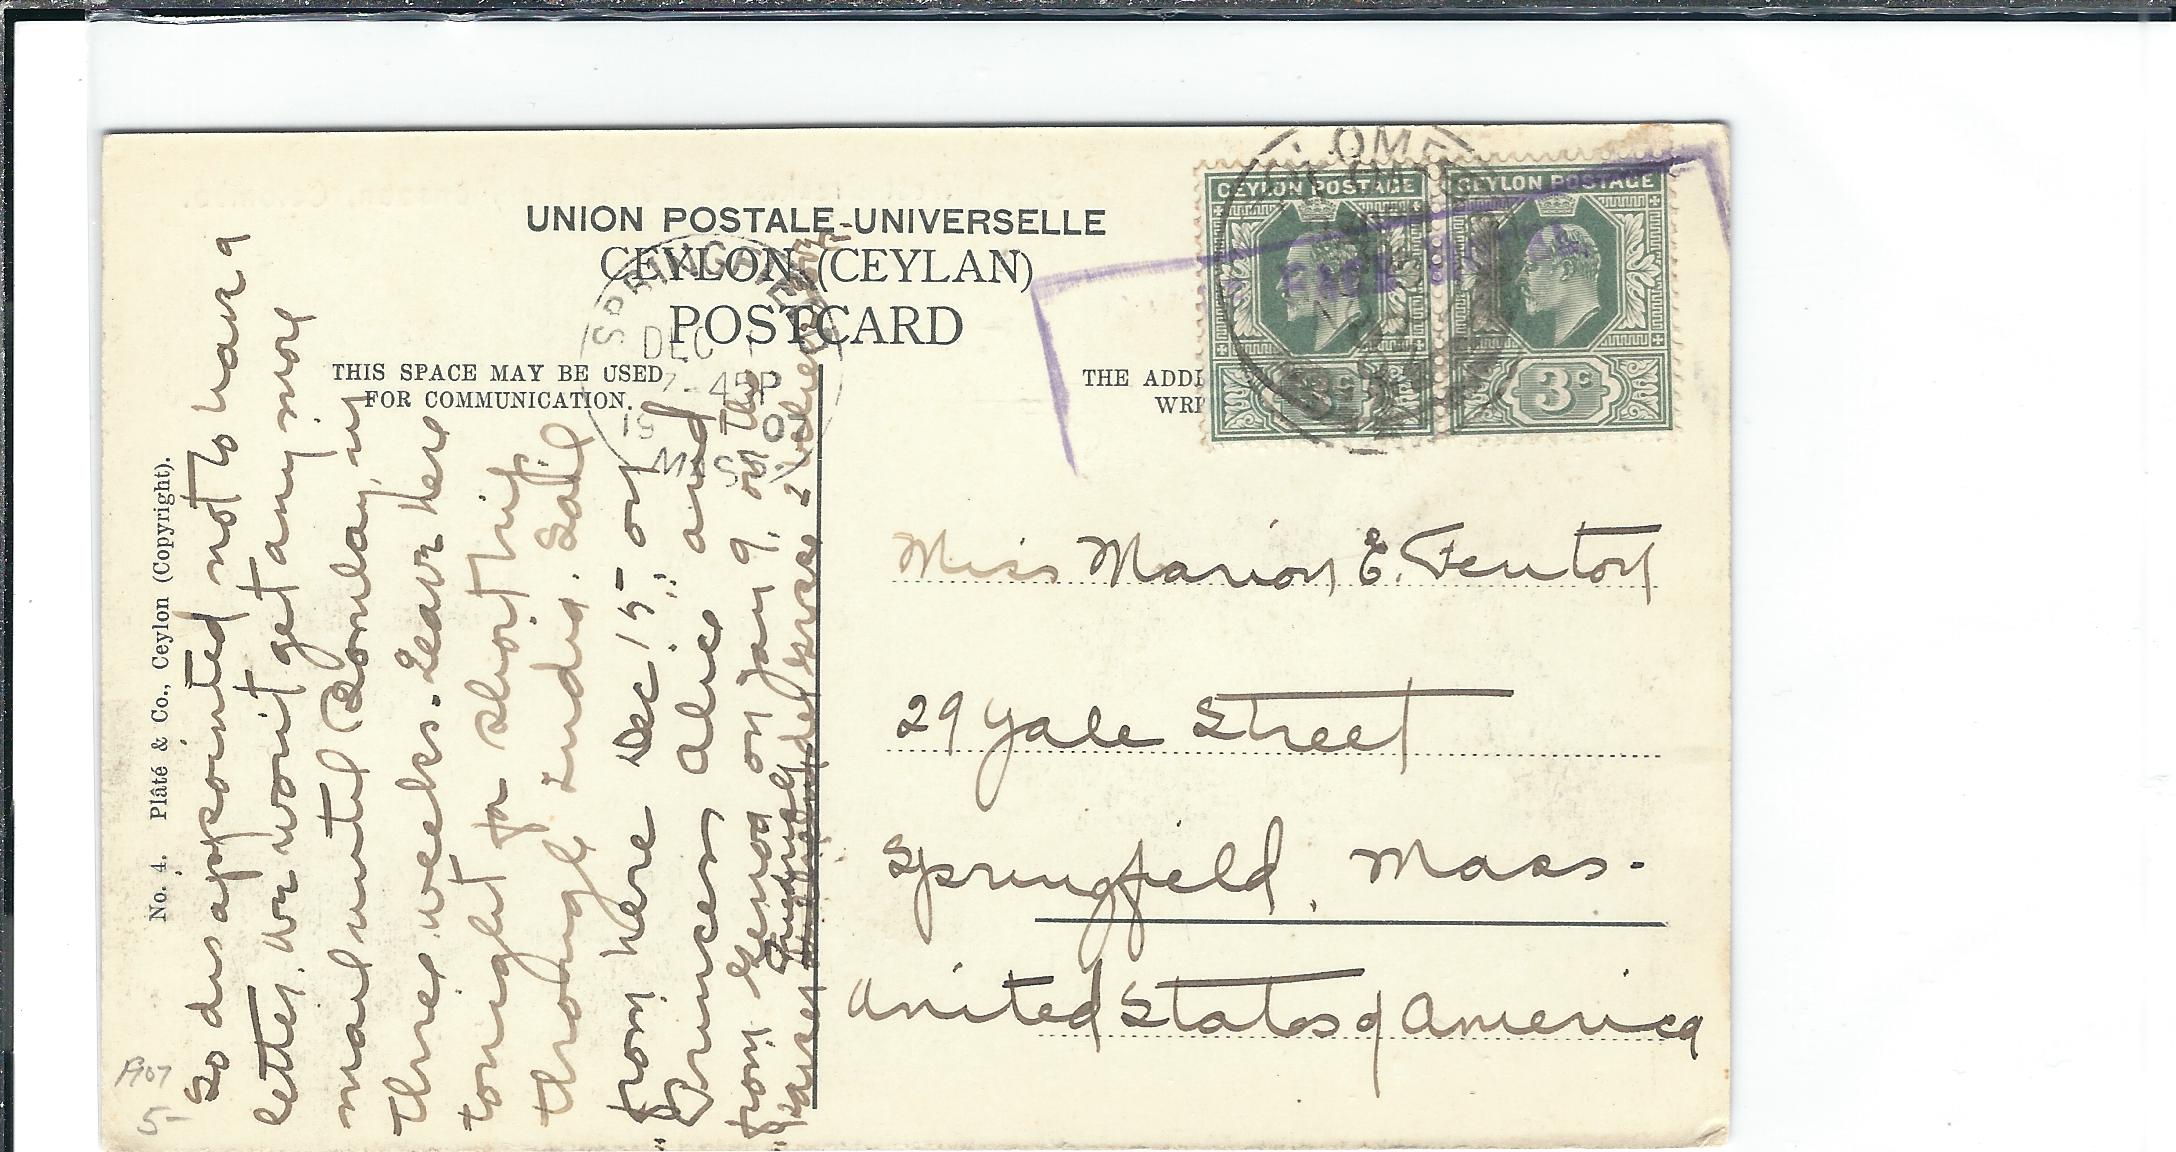 UNION POSTALE-UNIVERSELLE
CEYLON (CEYLAN)
POSTCARD
THIS SPACE MAY BE USED
FOR COMMUNICATION.
THE ADDR
WRI
CEYLON POSTAGE
CEYLON POSTAGE
3c
3c
SPRINGFIELD
DEC
7-45P
19
MASS.
No. 4. Plâté & Co., Ceylon (Copyright).
So disappointed not to have a
letter, we won't get any more
mail until Bombay, in
three weeks. Leave here
tonight for short trip
through India. Sail
from here Dec 15 on
"Princess Alice" and
from Genoa on Jan 9, on the
"
Miss Marion E. Fenton
29 Yale Street
Springfield, Mass.
United States of America
1907
5-